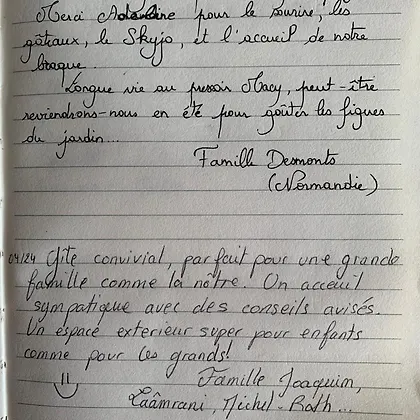 Merci pour le sourire, les
gâteaux, le Skyjo, et l'accueil de notre
braque.
Longue vie au pressoir Macy, peut-être
reviendrons-nous en été pour goûter les figues
du jardin...
Famille Desmonts
(Normandie)
04/24 Gîte convivial, parfait pour une grande
famille comme la nôtre. Un acceuil
sympatique avec des conseils avisés.
Un espace extérieur super pour enfants
comme pour les grands!
:)
Famille Joaquim,
Laâmrani, Michel-Bath...